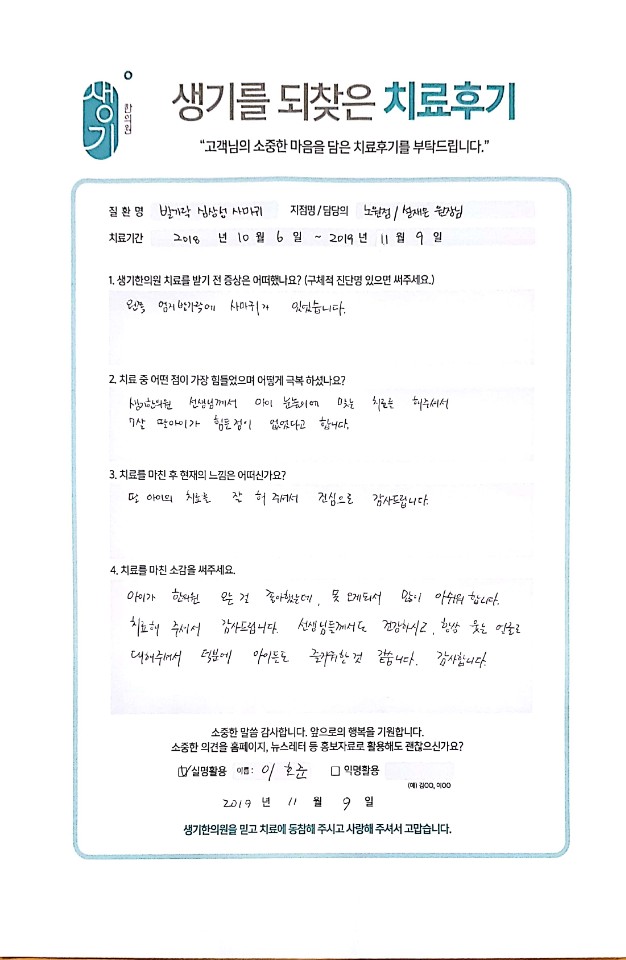 생기
한의원
생기를 되찾은 치료후기
“고객님의 소중한 마음을 담은 치료후기를 부탁드립니다.”
질 환 명 발가락 심상성 사마귀 지점명 / 담당의 노원점 / 원장님
치료기간 2018 년 10 월 6 일 ~ 2019 년 11 월 9 일
1. 생기한의원 치료를 받기 전 증상은 어떠했나요? (구체적 진단명 있으면 써주세요.)
왼쪽 엄지발가락에 사마귀가 있었습니다.
2. 치료 중 어떤 점이 가장 힘들었으며 어떻게 극복 하셨나요?
생기한의원 선생님께서 아이 눈높이에 맞는 치료를 해주셔서
7살 딸아이가 힘든점이 없었다고 합니다.
3. 치료를 마친 후 현재의 느낌은 어떠신가요?
딸 아이의 치료를 잘 해 주셔서 진심으로 감사드립니다.
4. 치료를 마친 소감을 써주세요.
아이가 한의원 오는 걸 좋아했는데, 못 오게되서 많이 아쉬워 합니다.
치료해 주셔서 감사드립니다. 선생님들께서도 건강하시고, 항상 웃는 얼굴로
대해주셔서 덕분에 아이들도 즐거워한 것 같습니다. 감사합니다.
소중한 말씀 감사합니다. 앞으로의 행복을 기원합니다.
소중한 의견을 홈페이지, 뉴스레터 등 홍보자료로 활용해도 괜찮으신가요?
☑실명활용 이름: 이 호준 □ 익명활용
(예) 김OO, 이OO
2019 년 11 월 9 일
생기한의원을 믿고 치료에 동참해 주시고 사랑해 주셔서 고맙습니다.